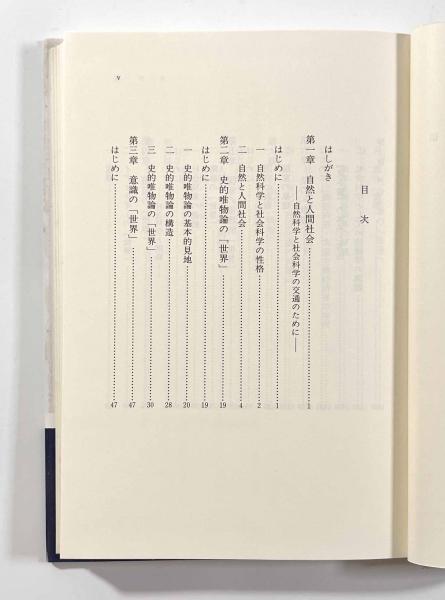 目次
はしがき
第一章 自然と人間社会……1
――自然科学と社会科学の交通のために――
はじめに……1
一 自然科学と社会科学の性格……2
二 自然と人間社会……4
第二章 史的唯物論の「世界」……19
はじめに……19
一 史的唯物論の基本的見地……20
二 史的唯物論の構造……28
三 史的唯物論の「世界」……30
第三章 意識の「世界」……47
はじめに……47
v